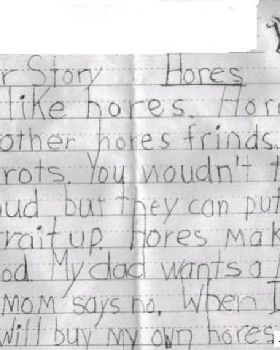 r Story Hores
like hores. Hor
other hores frinds.
rots. You woudn't t
ud but they can put
rait up. Hores mak
od. My dad wants a
Mom says no. When I
will buy my own hores